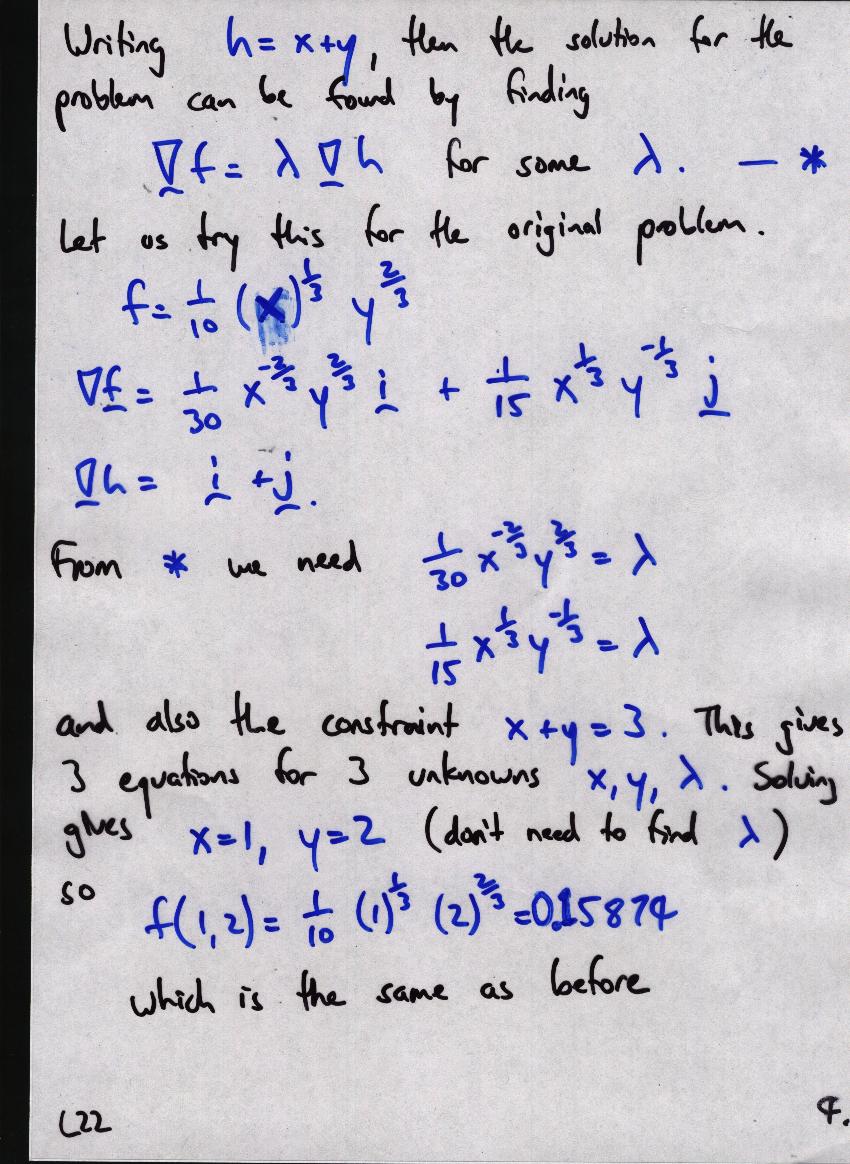 Writing h = x+y, then the solution for the
problem can be found by finding
∇f = λ ∇h for some λ. — *
Let us try this for the original problem.
f = 1/10 (x)^(1/3) y^(2/3)
∇f = 1/30 x^(-2/3) y^(2/3) i + 1/15 x^(1/3) y^(-1/3) j
∇h = i + j.
From * we need 1/30 x^(-2/3) y^(2/3) = λ
1/15 x^(1/3) y^(-1/3) = λ
and also the constraint x+y = 3. This gives
3 equations for 3 unknowns x, y, λ. Solving
gives x=1, y=2 (don't need to find λ)
so
f(1,2) = 1/10 (1)^(1/3) (2)^(2/3) = 0.15874
which is the same as before
L22 4.